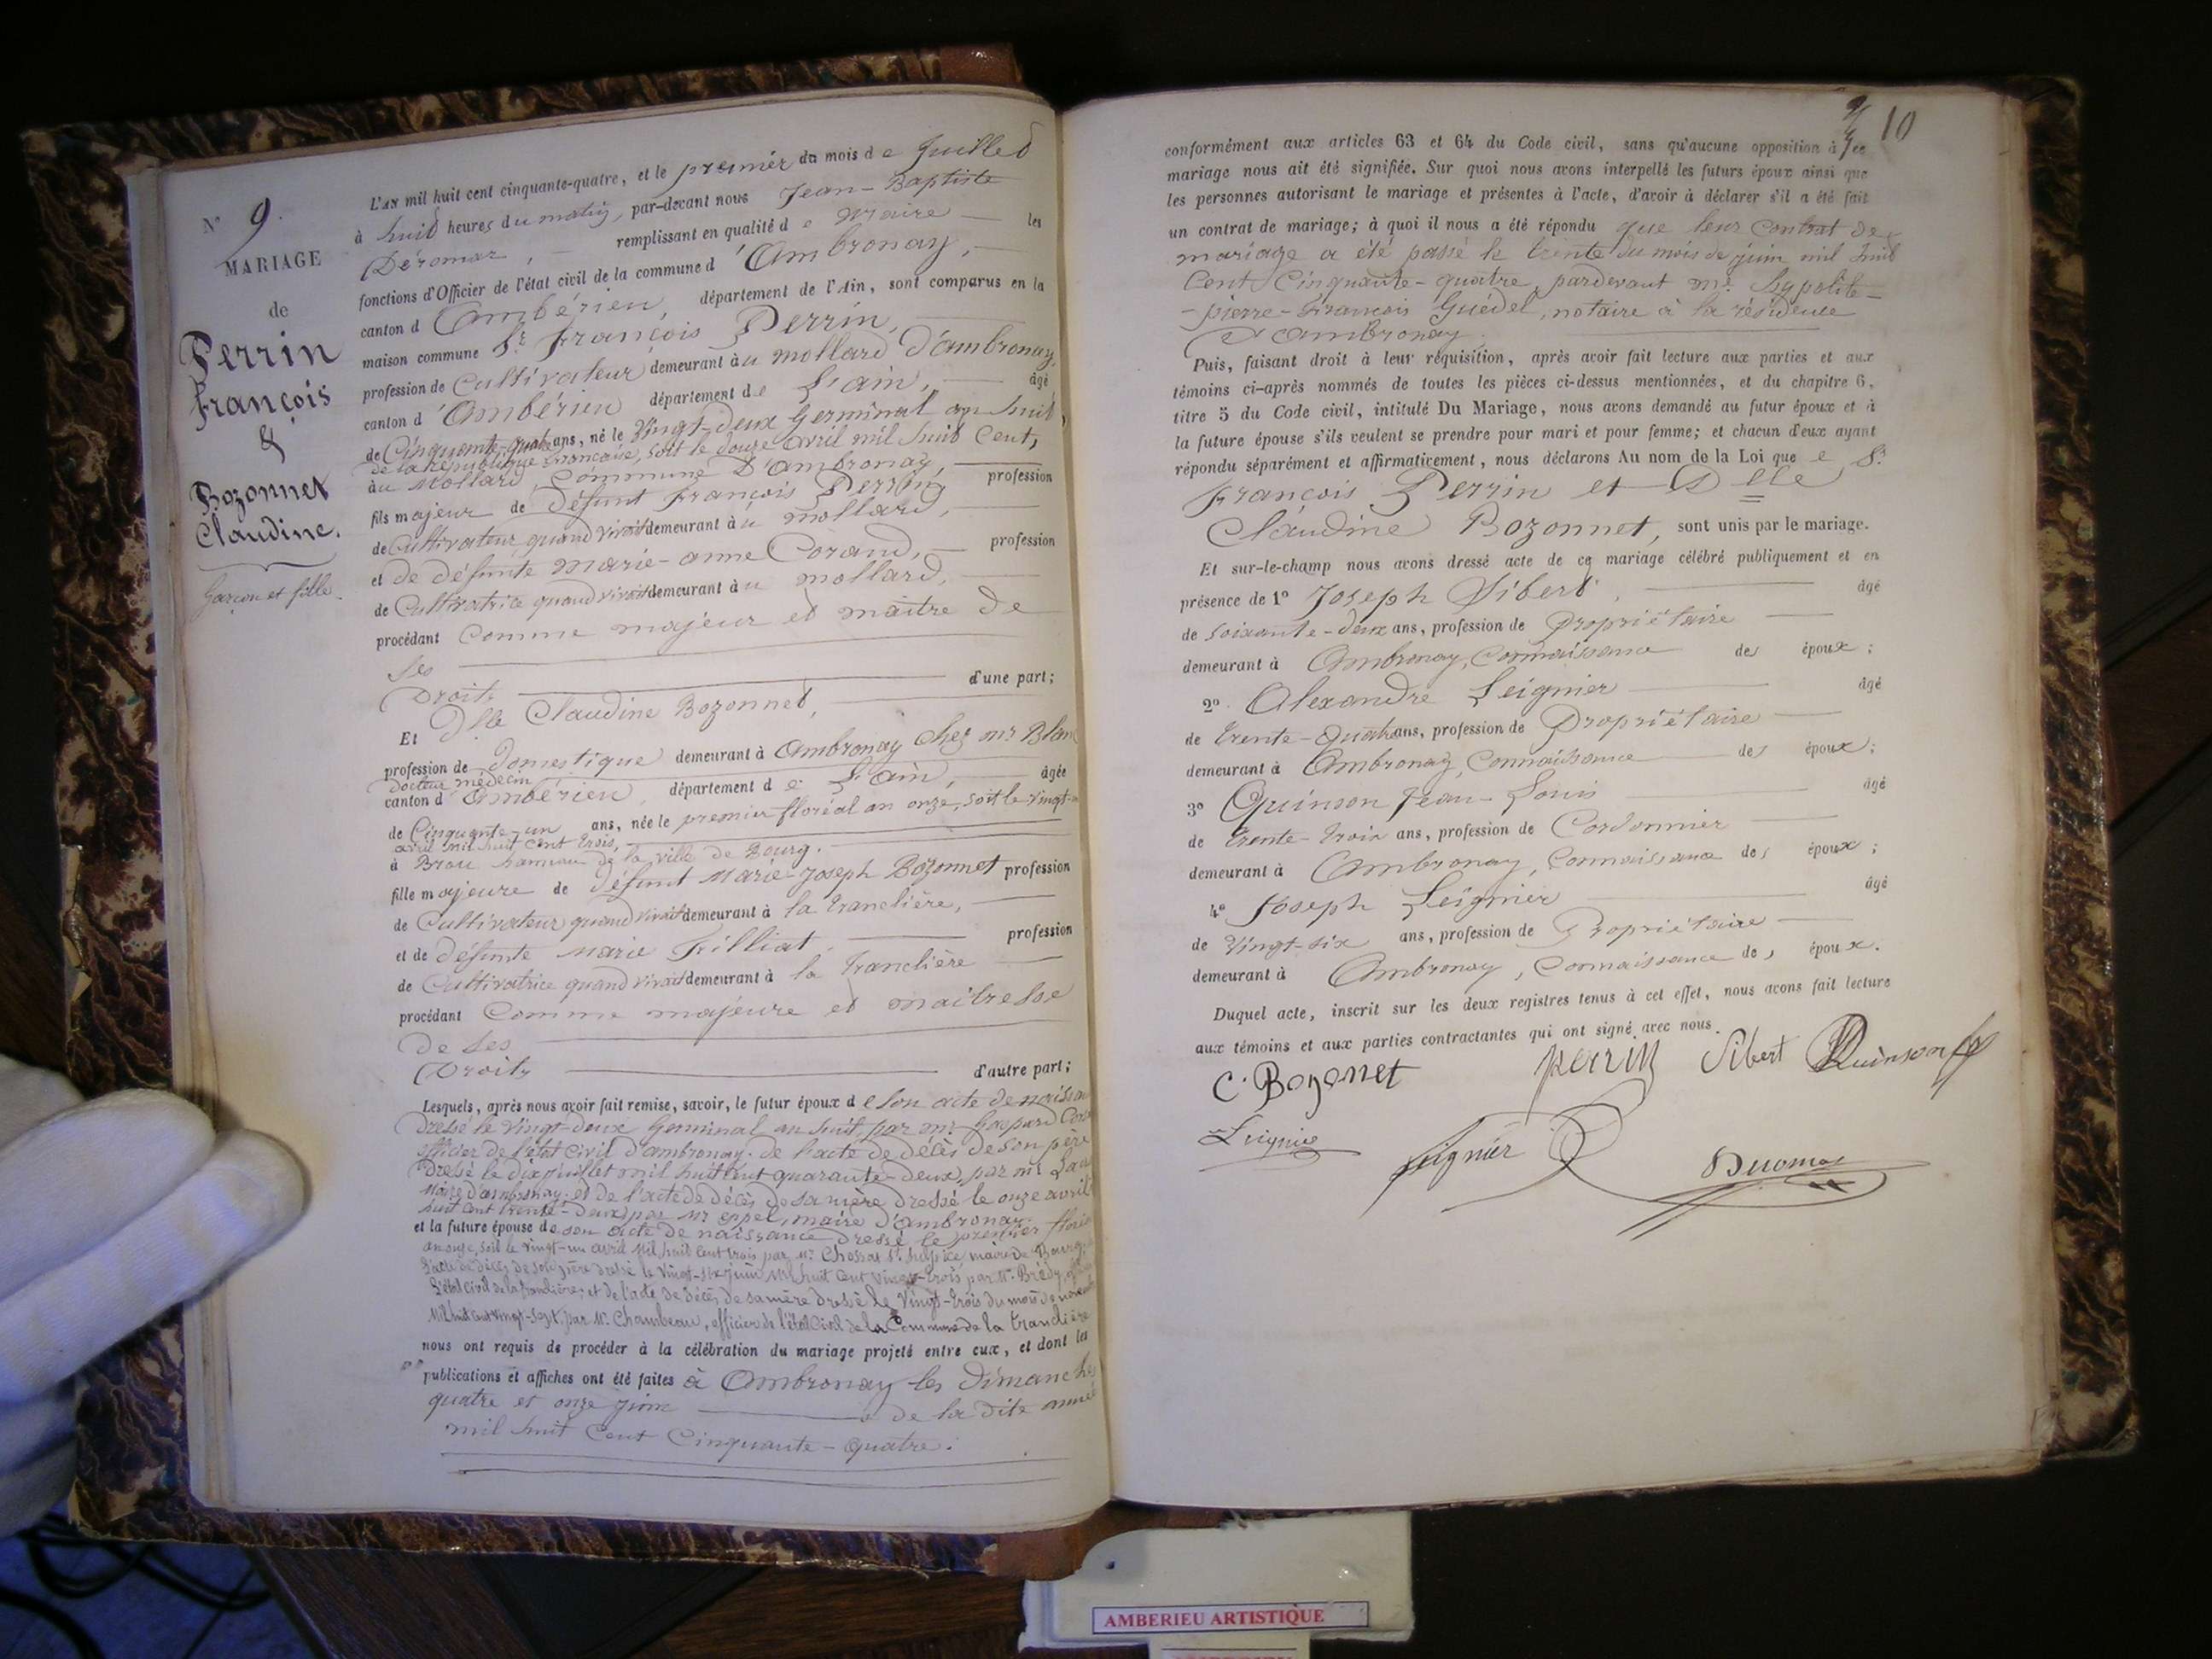 N° 9.
MARIAGE
de
Perrin
François
&
Bozonnet
Claudine.
Garçon et fille.
L'AN mil huit cent cinquante-quatre, et le premier du mois de Juillet
à huit heures du matin, par-devant nous Jean-Baptiste
remplissant en qualité de Maire les
fonctions d'Officier de l'état civil de la commune d'Ambronay,
canton d'Ambérieu, département de l'Ain, sont comparus en la
maison commune Sr François Perrin,
profession de Cultivateur demeurant au mollard d'ambronay,
canton d'Ambérieu département de L'ain, âgé
de Cinquante-quatre ans, né le Vingt-deux Germinal an huit
de la République française, soit le douze avril mil huit cent,
au Mollard, Commune d'Ambronay, profession
fils majeur de défunt François Perrin
de Cultivateur quand vivait demeurant au mollard,
et de défunte Marie-anne Corand, profession
de Cultivatrice quand vivait demeurant au mollard,
procédant comme majeur et maître de
ses
Droits d'une part;
Et Dlle Claudine Bozonnet,
profession de Domestique demeurant à Ambronay chez mr Blanc
Docteur médecin
canton d'Ambérieu, département de L'ain, âgée
de Cinquante-un ans, née le premier floréal an onze, soit le vingt-un
avril mil huit cent trois,
à Brou hameau de la ville de Bourg.
fille majeure de défunt Marie-Joseph Bozonnet profession
de Cultivateur quand vivait demeurant à la tranclière,
et de défunte Marie Trilliat. profession
de Cultivatrice quand vivait demeurant à la Tranclière
procédant Comme majeure et maitresse
de Ses
Droits d'autre part;
Lesquels, après nous avoir fait remise, savoir, le futur époux de son acte de naissance
dressé le vingt-deux Germinal an huit, par mr Gaspard
officier de l'état civil d'ambronay. de l'acte de décès de son père
dressé le dix juillet mil huit cent quarante-deux, par mr
Maire d'ambronay. et de l'acte de décès de sa mère dressé le onze avril
huit cent trente-deux par Mr maire d'Ambronay.
et la future épouse de son acte de naissance dressé le premier floréal
an onze, soit le vingt-un avril mil huit cent trois par Mr Chossat St Sulpice, maire de Bourg,
l'acte de décès de son père dressé le vingt-six juin mil huit cent vingt-trois par Mr
l'état civil de la tranclière; et de l'acte de décès de sa mère dressé le Vingt-trois du mois de novembre
Mil huit cent vingt-sept, par Mr Chambeau, officier de l'état Civil de la Commune de la tranclière
nous ont requis de procéder à la célébration du mariage projeté entre eux, et dont les
publications et affiches ont été faites à Ambronay les dimanches
quatre et onze juin de la dite année
mil huit Cent Cinquante-quatre.
10
conformément aux articles 63 et 64 du Code civil, sans qu'aucune opposition à ce
mariage nous ait été signifiée. Sur quoi nous avons interpellé les futurs époux ainsi que
les personnes autorisant le mariage et présentes à l'acte, d'avoir à déclarer s'il a été fait
un contrat de mariage; à quoi il nous a été répondu que leur Contrat de
mariage a été passé le trente du mois de juin mil huit
Cent Cinquante-quatre, pardevant me. hypolite-
-pierre-François Guédel, notaire à la résidence
D'ambronay.
Puis, faisant droit à leur réquisition, après avoir fait lecture aux parties et aux
témoins ci-après nommés de toutes les pièces ci-dessus mentionnées, et du chapitre 6,
titre 5 du Code civil, intitulé Du Mariage, nous avons demandé au futur époux et à
la future épouse s'ils veulent se prendre pour mari et pour femme; et chacun d'eux ayant
répondu séparément et affirmativement, nous déclarons Au nom de la Loi que e, Sr
François Perrin et Dlle
Claudine Bozonnet, sont unis par le mariage.
Et sur-le-champ nous avons dressé acte de ce mariage célébré publiquement et en
présence de 1° Joseph Sibert, âgé
de soixante-deux ans, profession de Propriétaire
demeurant à Ambronay, Connaissance des époux;
2° Alexandre Leignier âgé
de trente-quatre ans, profession de Propriétaire
demeurant à Ambronay, Connaissance des époux;
3° Quinson Jean-Louis âgé
de trente-trois ans, profession de Cordonnier
demeurant à Ambronay, Connaissance des époux;
4° Joseph Leignier âgé
de Vingt-six ans, profession de Propriétaire
demeurant à Ambronay, Connaissance des époux.
Duquel acte, inscrit sur les deux registres tenus à cet effet, nous avons fait lecture
aux témoins et aux parties contractantes qui ont signé avec nous.
C. Bozonet perrin Sibert Quinson
Leignier Leignier
AMBERIEU ARTISTIQUE